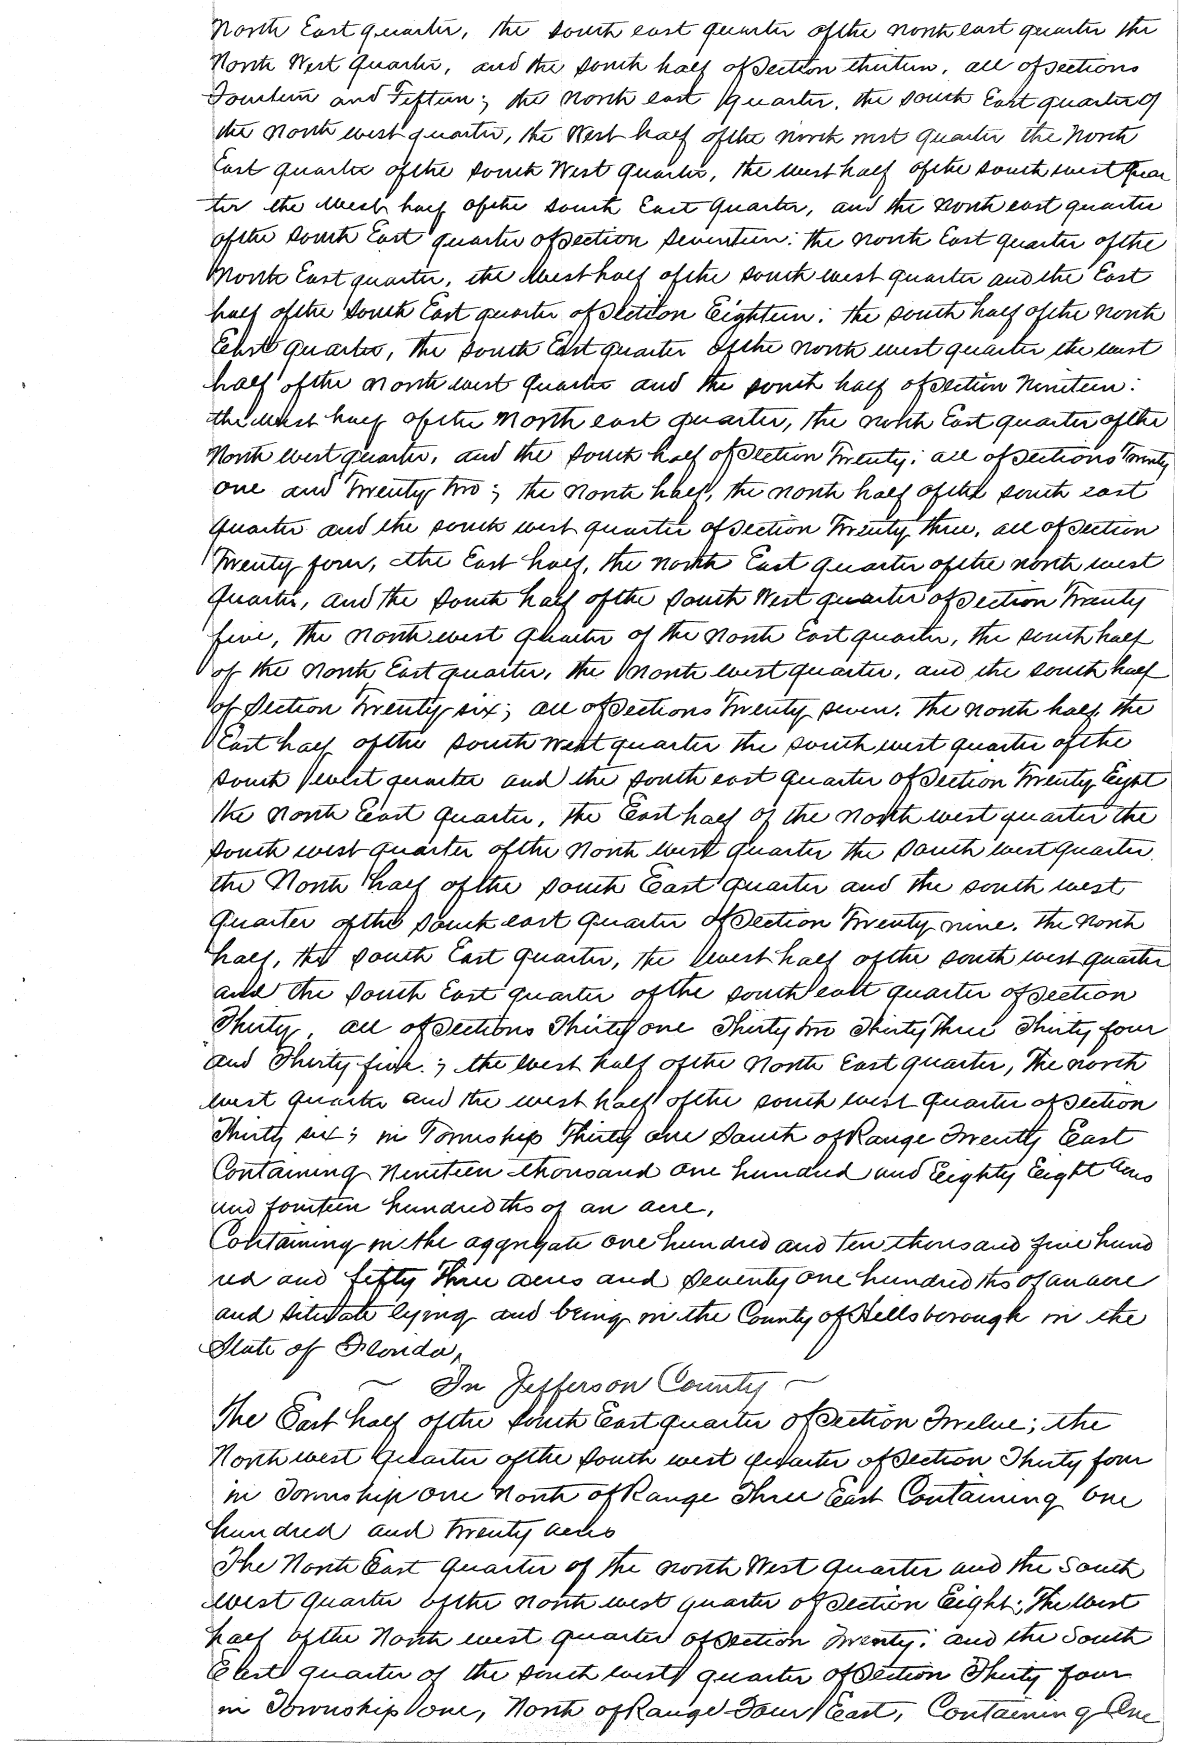 North East quarter, the south east quarter of the north east quarter the
North West Quarter, and the South half of Section thirteen, all of sections
Fourteen and Fifteen; the North east quarter, the South East quarter of
the North west quarter, the West half of the north west quarter the North
East quarter of the South West Quarter, the west half of the South west Quar
ter the West half of the South East Quarter, and the North east quarter
of the South East quarter of Section Seventeen: the North East quarter of the
North East quarter, the West half of the South west quarter and the East
half of the South East quarter of Section Eighteen: the South half of the North
East quarter, the South East quarter of the North west quarter the west
half of the North west Quarter and the South half of Section Nineteen:
the West half of the North east quarter, the North East quarter of the
North west quarter, and the South half of Section Twenty: all of Sections Twenty
one and Twenty Two; the North half, the North half of the South east
Quarter and the South west quarter of Section Twenty three, all of Section
Twenty four, the East half, the North East Quarter of the north west
Quarter, and the South half of the South West quarter of Section Twenty
five, the North west Quarter of the North East quarter, the South half
of the North East quarter, the North west quarter, and the South half
of Section Twenty six; all of Sections Twenty seven. The North half, the
East half of the South West quarter the South west quarter of the
South west quarter and the South east Quarter of Section Twenty Eight
the North East Quarter, the East half of the North west quarter the
South west quarter of the North west quarter the South west quarter
the North half of the South East Quarter and the South west
Quarter of the South east Quarter of Section Twenty nine. the North
half, the South East Quarter, the West half of the South west quarter
and the South East quarter of the South east quarter of Section
Thirty, all of Sections Thirty one Thirty two Thirty Three Thirty four
and Thirty five.; the West half of the North East quarter, The north
west Quarter and the west half of the South west Quarter of Section
Thirty six; in Township Thirty one South of Range Twenty East
Containing Nineteen thousand one hundred and Eighty Eight Acres
and fourteen hundredths of an acre,
Containing in the aggregate one hundred and ten thousand five hund
red and fifty three acres and Seventy one hundredths of an acre
and situate lying and being in the County of Hillsborough in the
State of Florida,
~ In Jefferson County ~
The East half of the South East quarter of Section Twelve; the
North west Quarter of the South west Quarter of Section Thirty four
in Township One North of Range Three East Containing One
hundred and twenty acres
The North East Quarter of the North West Quarter and the South
west Quarter of the North west quarter of Section Eight; The west
half of the North west quarter of Section Twenty: and the South
East quarter of the South west quarter of Section Thirty four
in Township one, North of Range Four East, Containing One